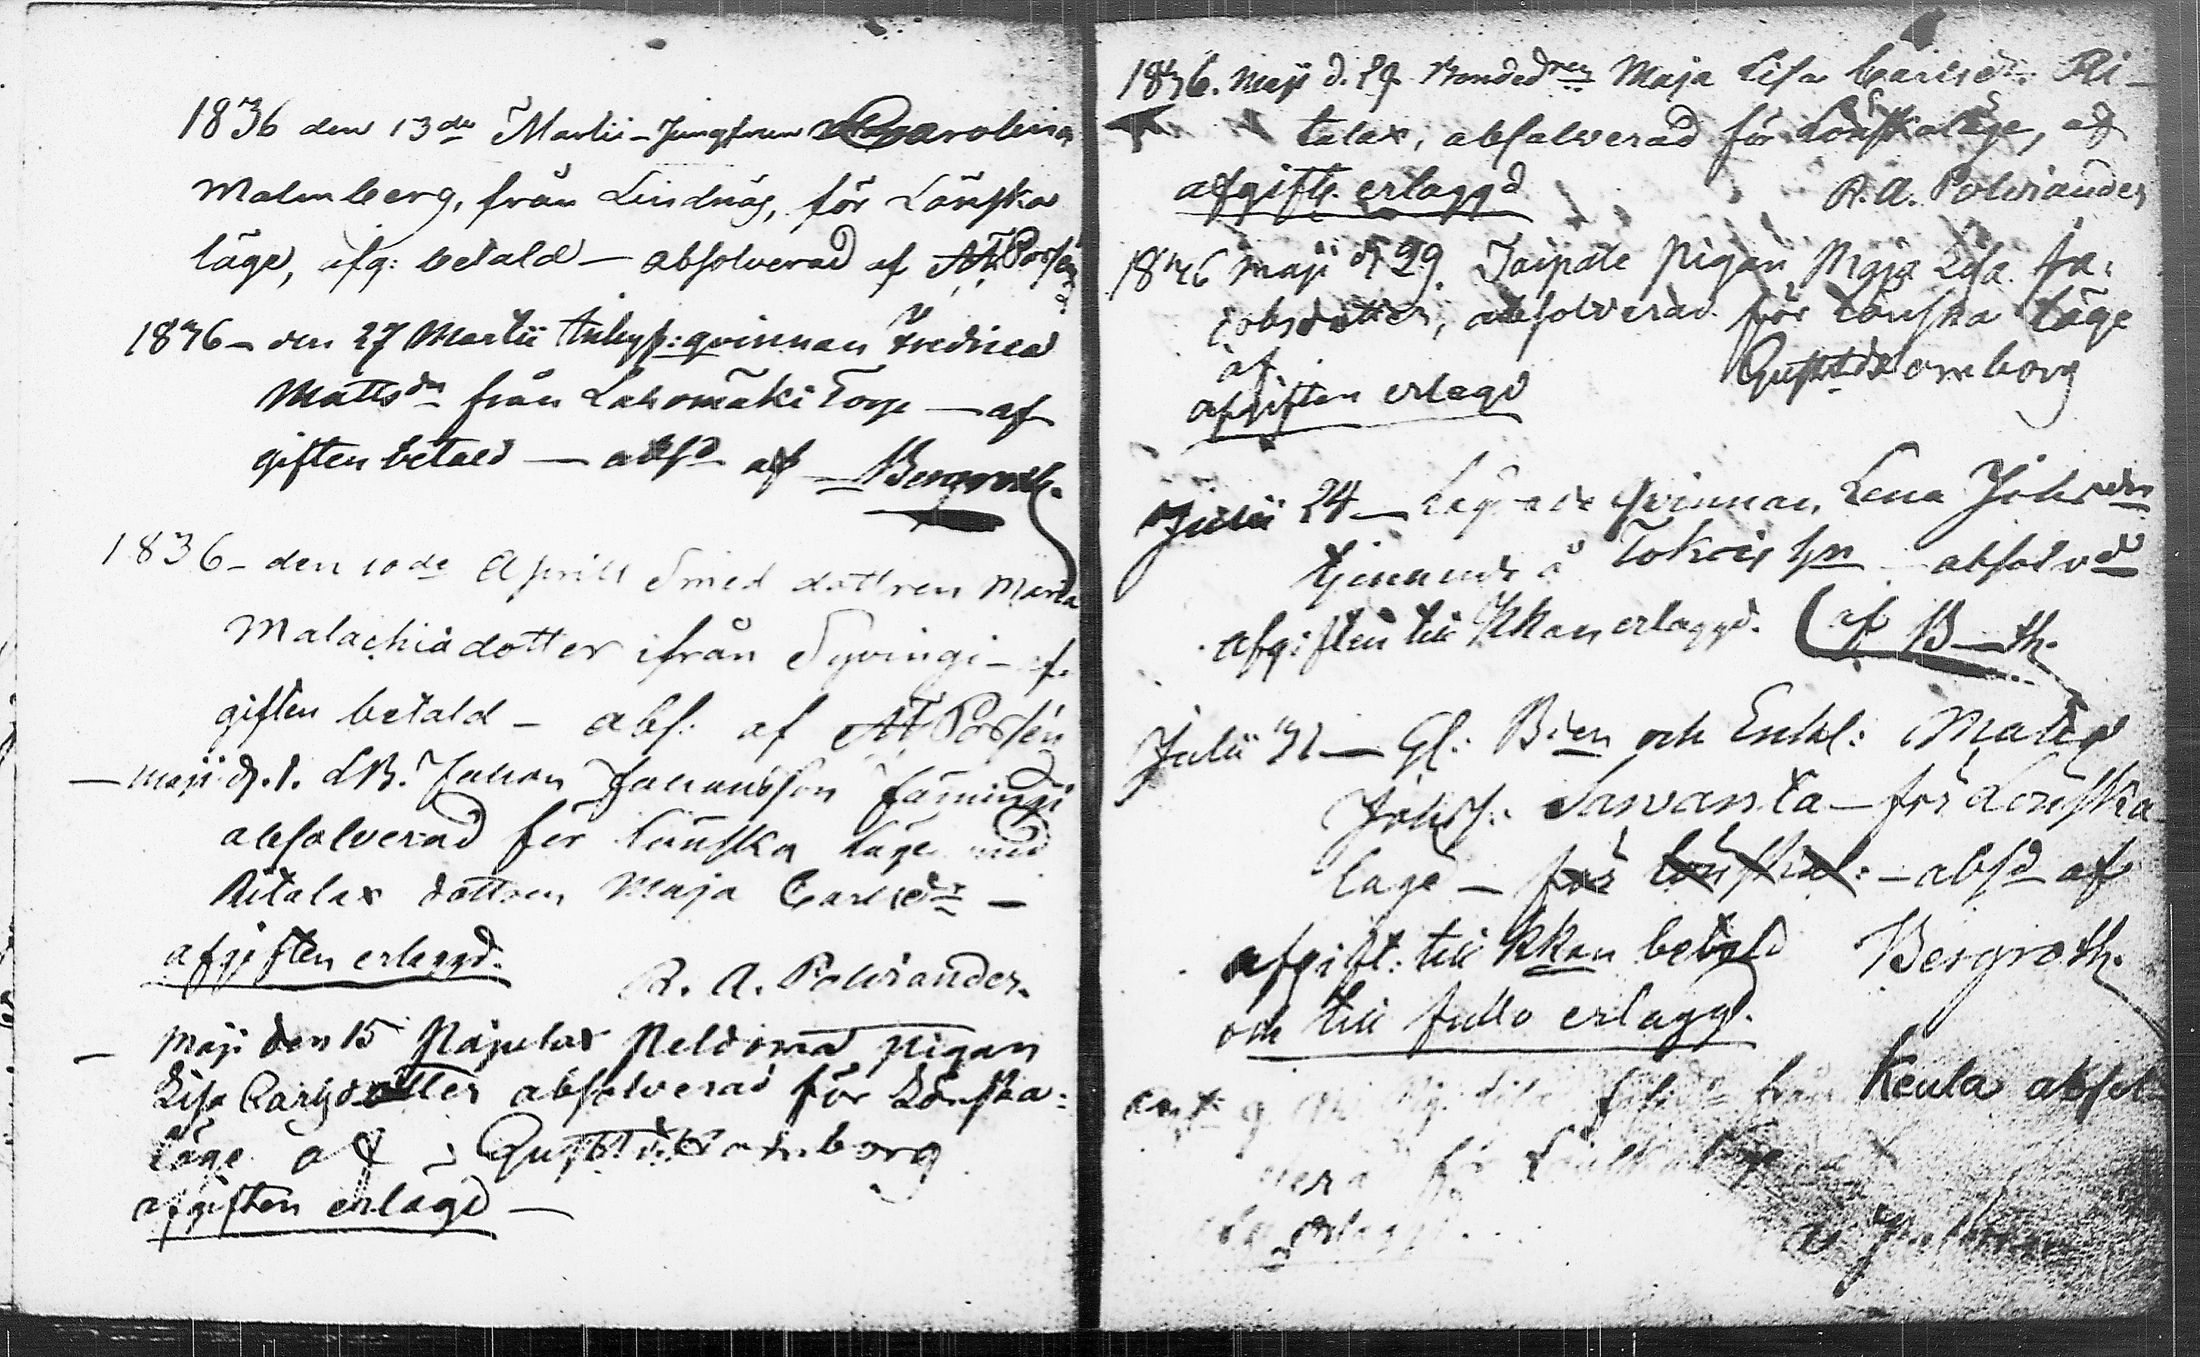 1836 den 13de Martii - Jungfrun Carolina
Malmberg, från Lindnäs, för Lönska
läge, afg: betald - absolverad af A.F. Porsén
1836 - den 27 Martii Inhys: qvinnan Fredrica
Mattsdr från Lahomäki Torp - af
giften betald - absd af - Bergroth.
1836 - den 10de Aprill Smed dottren Maria
Malachiadotter ifrån Syvingi - af-
giften betald - abs. af A.F. Porsén
- Maji d. 1. Johan Johansson
absolverad för Lönska läge med
Ritalax dottren Maja Carlsdr -
afgiften erlaggd.
R. A. Polviander.
- Maji den 15 Pajulax Peldoma pigan
Lisa Carlsdotter absolverad för Lönska-
läge af Gust. Stromborg
afgiften erlagd -
1836. Maji d. 29. Bondedren Maja Lisa Carlsdr Ri-
talax, absolverad för Lönskaläge, af
afgift. erlaggd R. A. Polviander
1836 Maji d. 29. Taipale pigan Maja Lisa Ja-
cobsdotter, absolverad för Lönska läge
af Gust. Stromborg
afgiften erlagd
Julii 24 - Lägrade Qvinnan Lena Johsdr
tjenande å Tokois hn - absolvd
afgiften till Kkan erlaggd. (af B-th.
Julii 31 - Gl: B:den och Enkl: Matts
Johss: Savanta - för Lönska
läge - för Lönskal: - absd af
afgift: till Kkan betald Bergroth.
och till fullo erlaggd.
från Keula absol-
verad för Lönska läge
erlaggd.